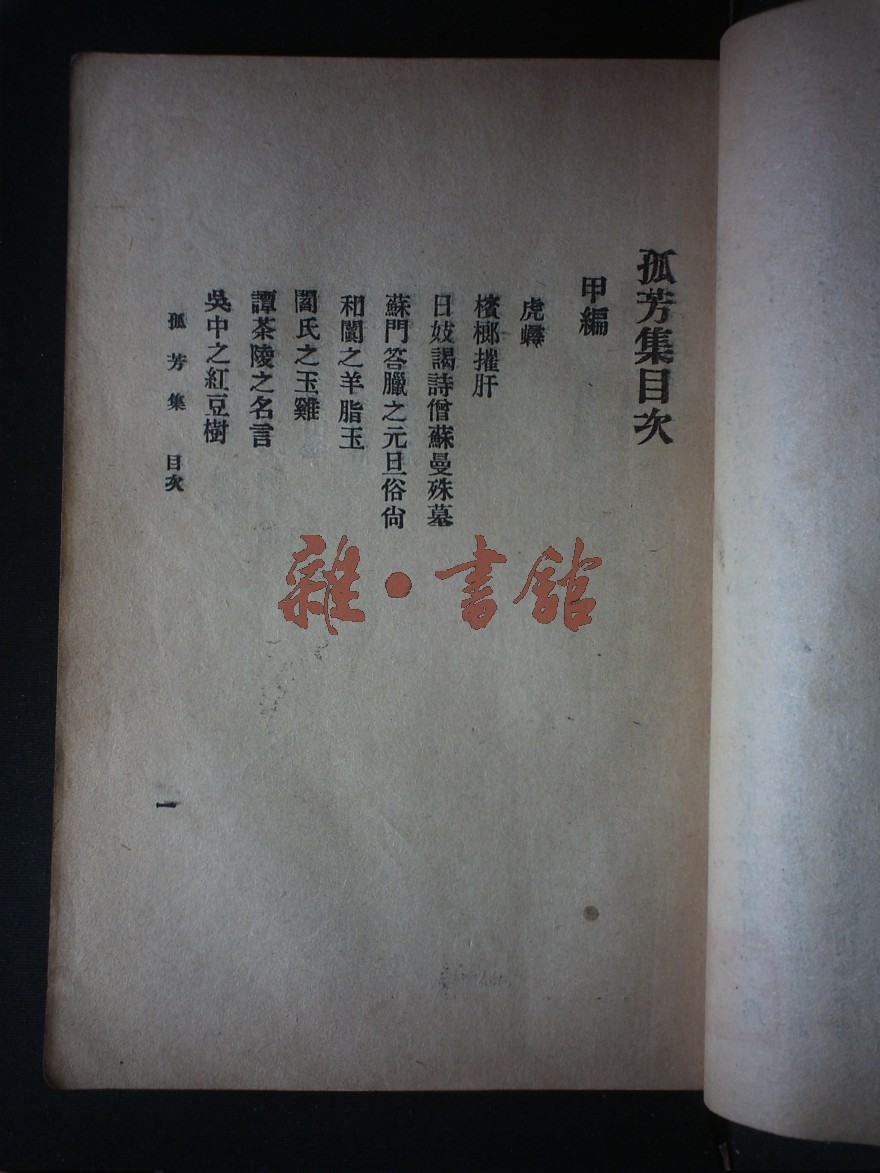 孤芳集目次
甲編
虎蠭
檳榔摧肝
日妓謁詩僧蘇曼殊墓
蘇門答臘之元旦俗尙
和闐之羊脂玉
閻氏之玉雞
譚茶陵之名言
吳中之紅豆樹
孤芳集 目次
一
雜·書館